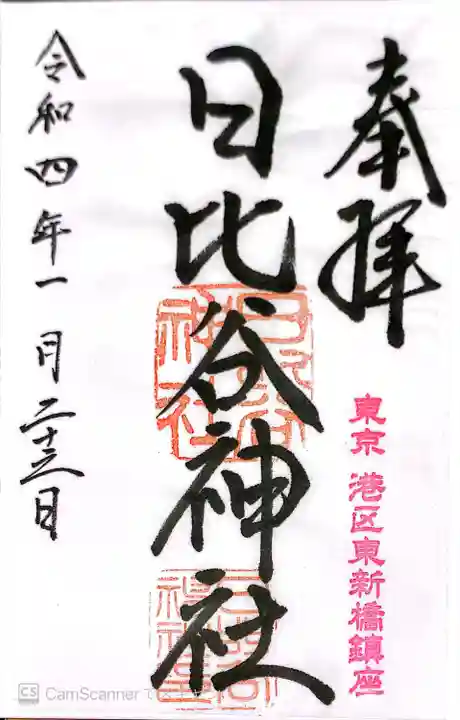 奉拝
東京 港区東新橋鎮座
日比谷神社
日比谷神社
令和四年一月二十三日
CS CamScanner